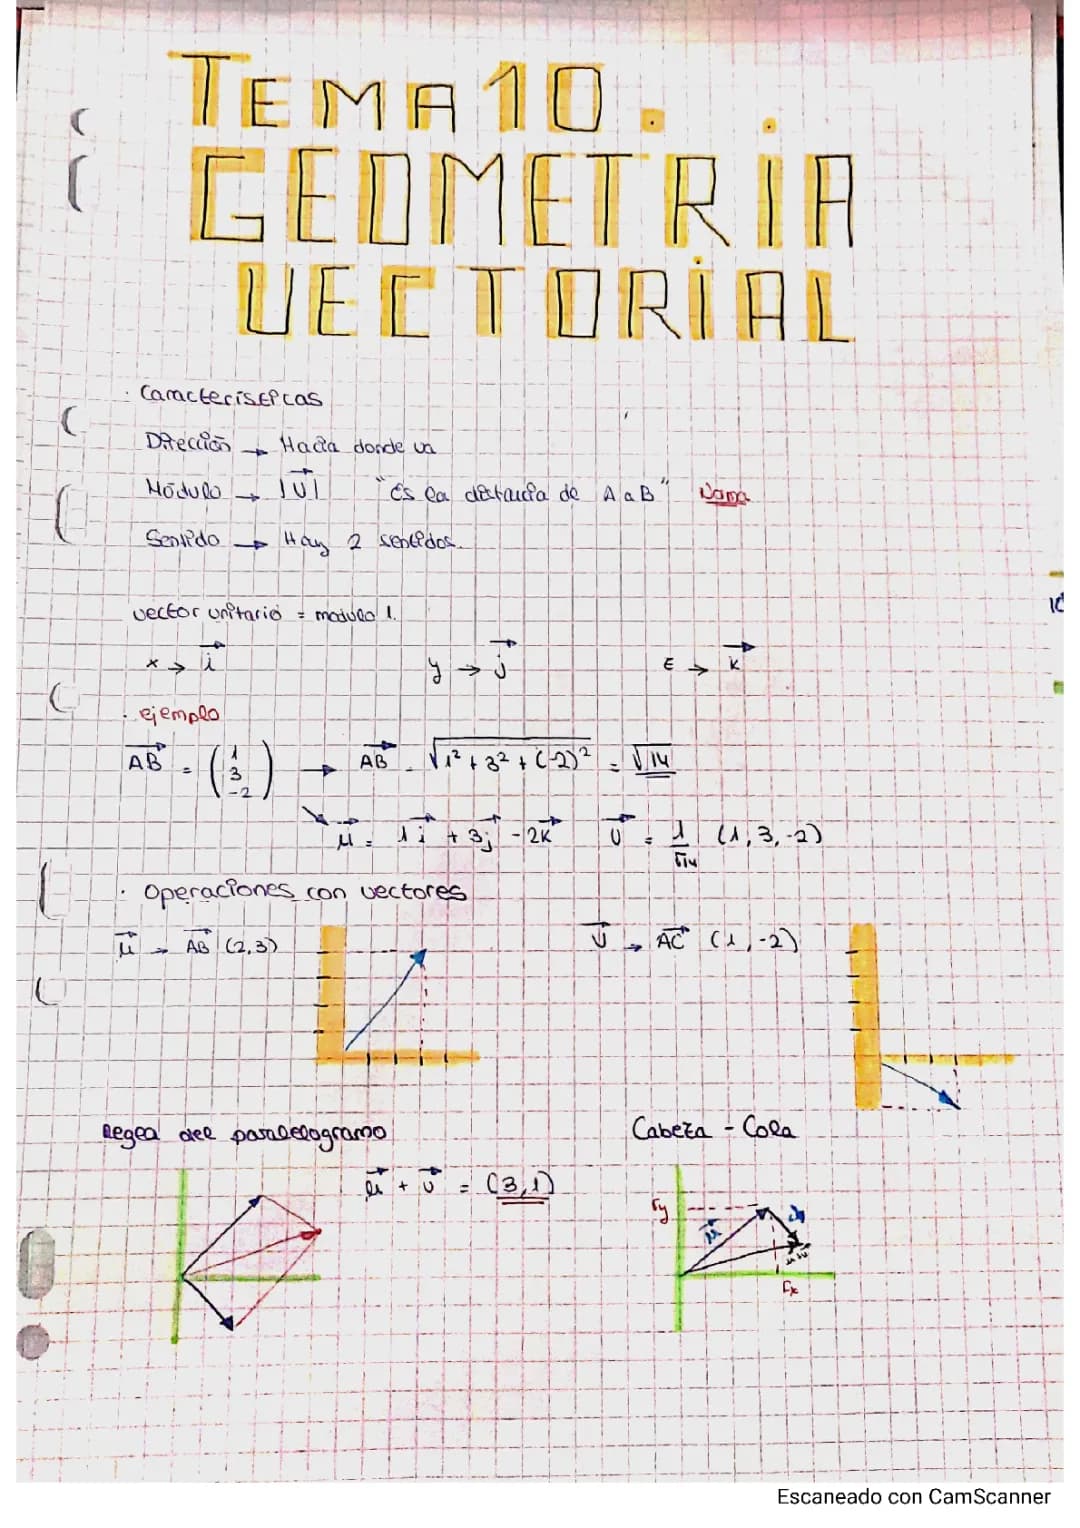 TEMA 10.
GEOMETRIA
VECTORIAL
· Características
Dirección → Hacia donde va
Módulo → |v⃗| "Es la distancia de A a B" Norma
Sentido → Hay 2 sentidos.
vector unitario = modulo 1.
x → i⃗ y → j⃗ z → k⃗
· ejemplo
AB⃗ = (1 3 -2) → AB⃗ = √1² + 3² + (-2)² = √14
μ⃗ = 1i⃗ + 3j⃗ - 2k⃗ v⃗ = 1/√14 (1, 3, -2)
· Operaciones con vectores
μ⃗ → AB⃗ (2,3) v⃗ → AC⃗ (1, -2)
Regla del paralelogramo Cabeza - Cola
μ⃗ + v⃗ = (3,1)
ry μ⃗
rx
Escaneado con CamScanner